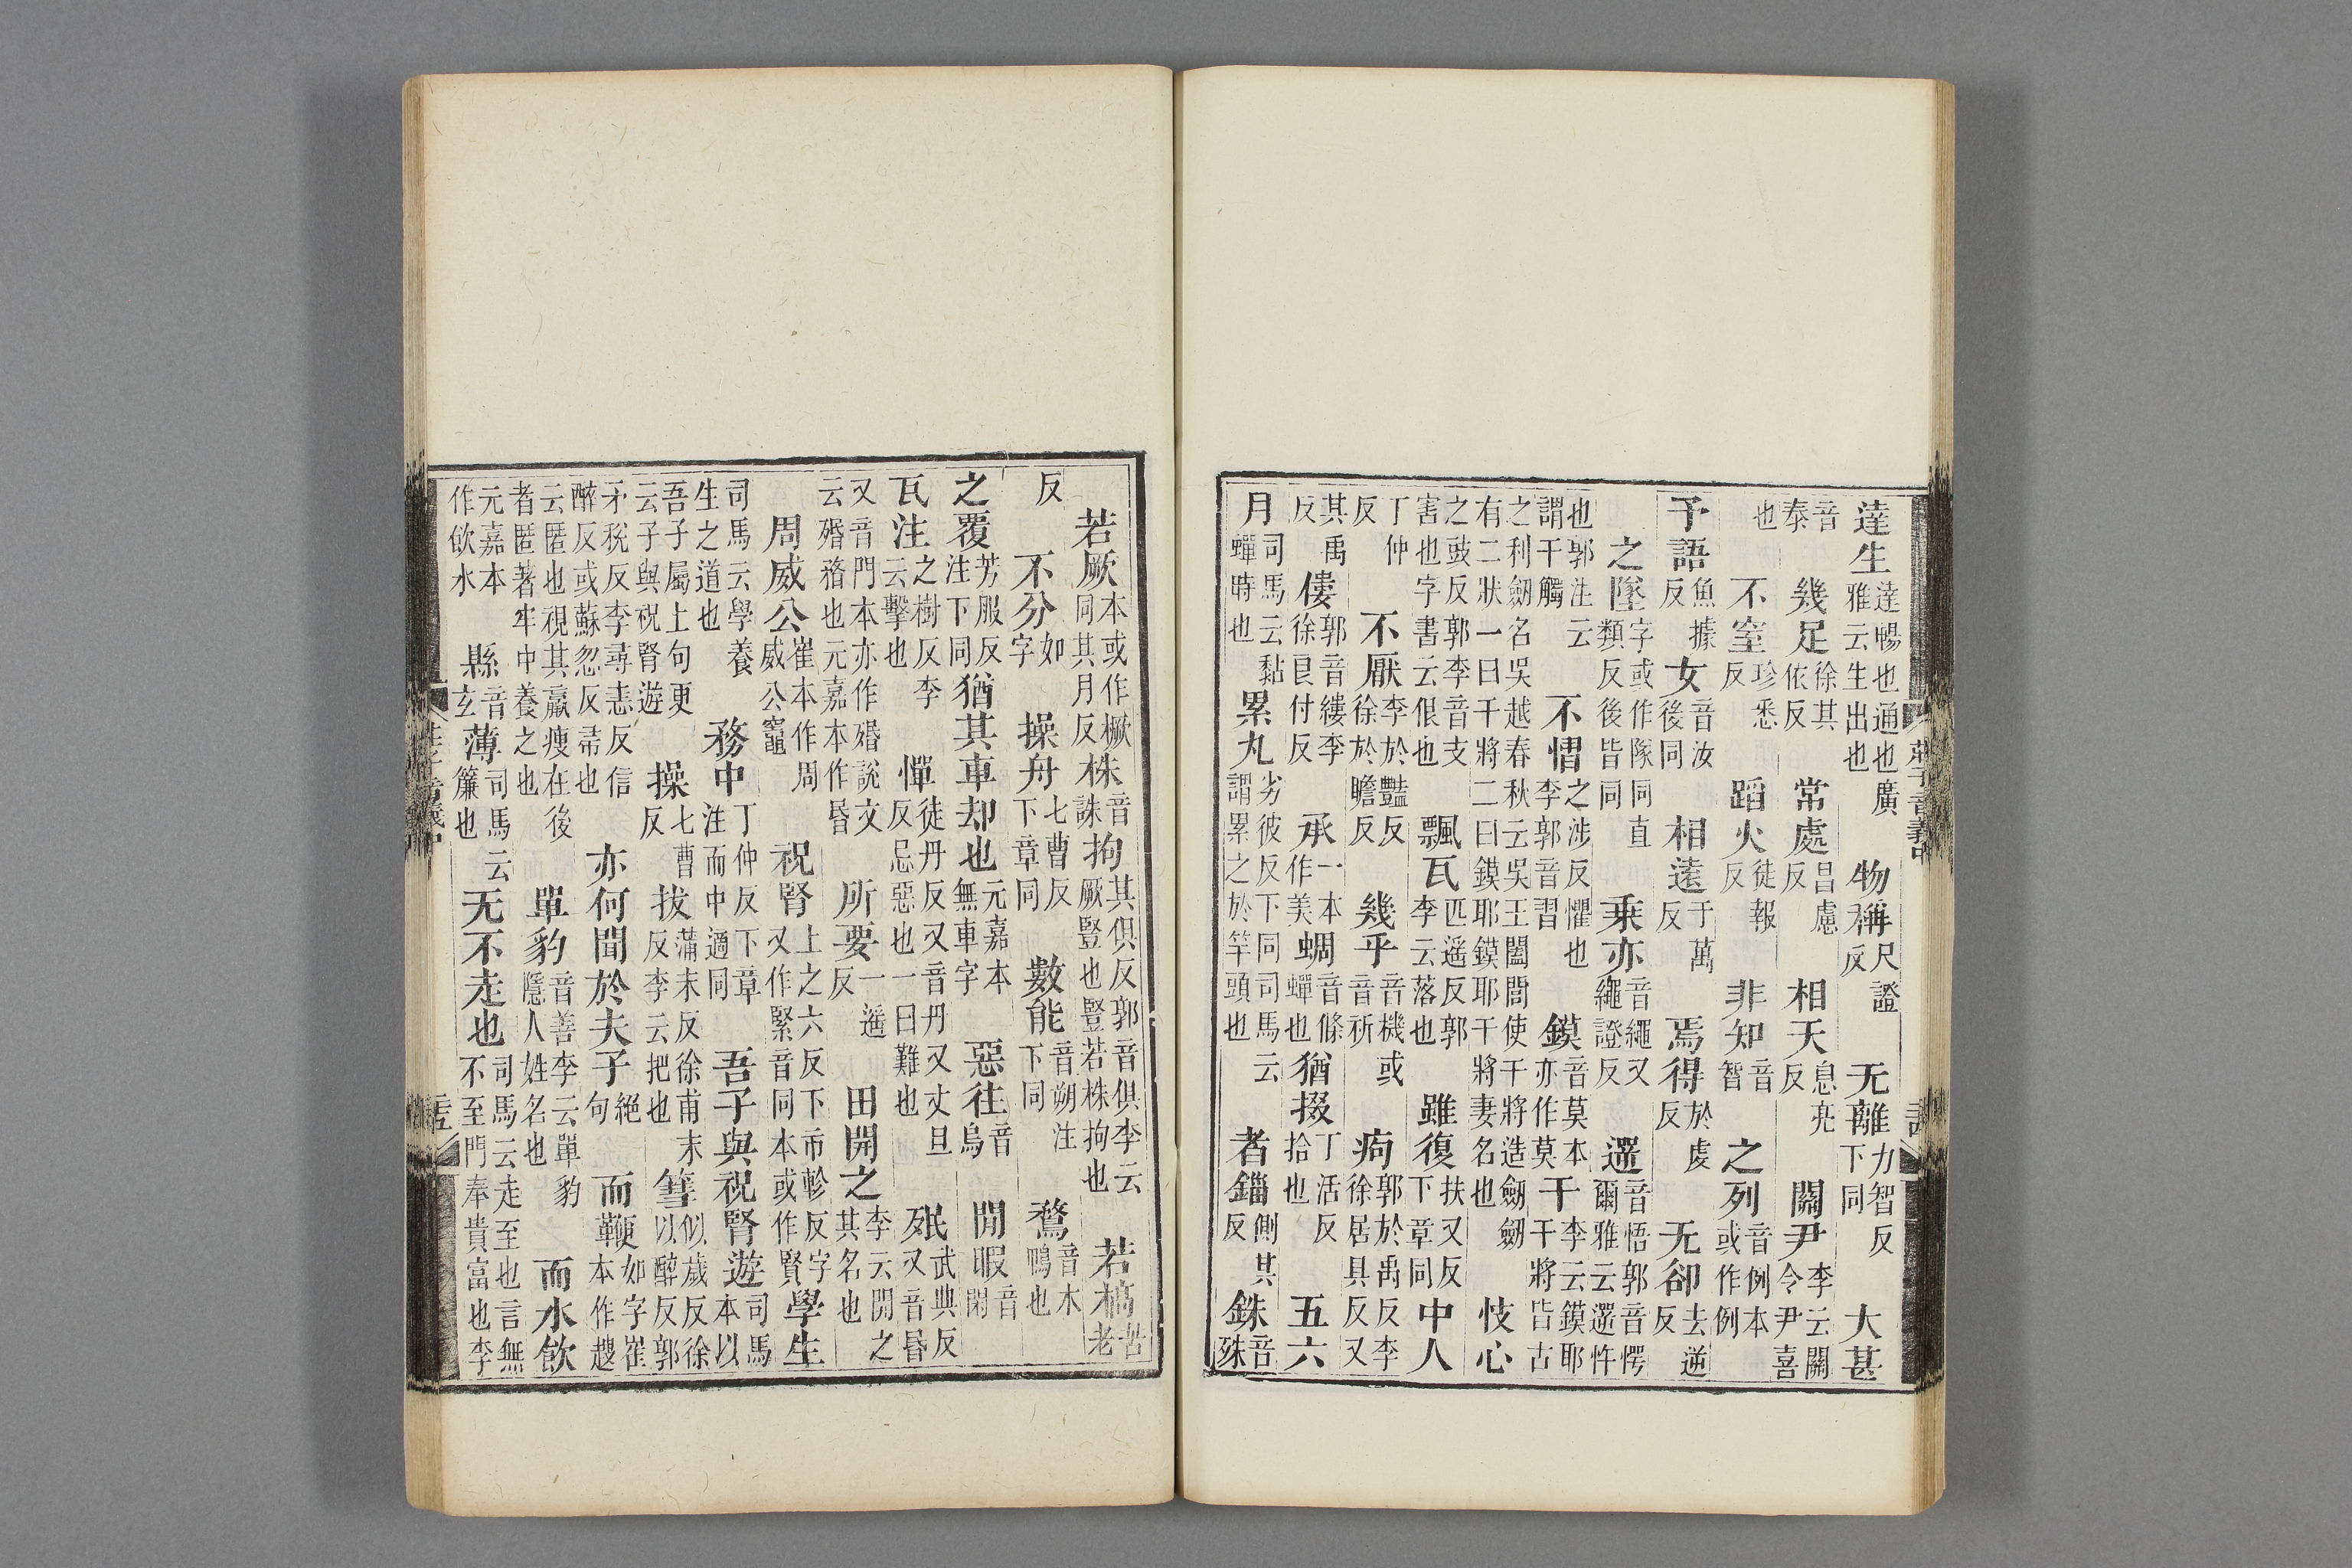 莊子音義中
達生達暢也通也廣雅云生出也物稱尺證反无離力智反下同大甚
音泰幾足徐其依反常處昌慮反相天息亮反關尹李云關令尹喜
也不窒珍悉反蹈火徒報反非知音智之列音例本或作例
予語魚據反女音汝後同相遠于萬反焉得於虔反无卻去逆反
之墜字或作隊同直類反後皆同乘亦音繩又繩證反遻音悟郭音愕爾雅云遻忤
也郭注云謂干觸不慴之涉反懼也李郭音習鏌音莫本亦作莫干李云鏌耶干將皆古
之利劒名吳越春秋云吳王闔閭使干將造劒劒有二狀一曰干將二曰鏌耶鏌耶干將妻名也忮心
之豉反郭李音支害也字書云佷也飄瓦匹遥反郭李云落也雖復扶又反下章同中人
丁仲反不厭李於豔反徐於瞻反幾乎音機或音祈痀郭於禹反李徐居具反又
其禹反僂郭音縷李徐良付反承一本作美蜩音條蟬也猶掇丁活反拾也五六
月司馬云黏蟬時也累丸劣彼反下同司馬云謂累之於竿頭也者錙側其反銖音殊
若厥本或作橛同其月反株音誅拘其俱反郭音俱李云厥豎也豎若株拘也若槁苦老
反不分如字操舟七曹反下章同數能音朔注下同鶩音木鴨也
之覆芳服反注下同猶其車却也元嘉本無車字惡往音烏閒暇音閑
瓦注之樹反李云擊也憚徒丹反又音丹又丈旦反忌惡也一曰難也殙武典反又音昏
又音門本亦作婚說文云殙瞀也元嘉本作昏所要一遥反田開之李云開之其名也
周威公崔本作周威公竈祝腎上之六反下市軫反字又作緊音同本或作賢學生
司馬云學養生之道也務中丁仲反下章注而中適同吾子與祝腎遊司馬本以
吾子屬上句更云子與祝腎遊操七曹反拔蒲末反徐甫末反李云把也篲似歲反徐以醉反郭
矛稅反李尋恚反信醉反或蘇忽反帚也亦何聞於夫子絕句而鞭如字崔本作趮
云匿也視其羸瘦在後者匿著牢中養之也單豹音善李云單豹隱人姓名也而水飲
元嘉本作飲水縣音玄薄司馬云簾也无不走也司馬云走至也言無不至門奉貴富也李